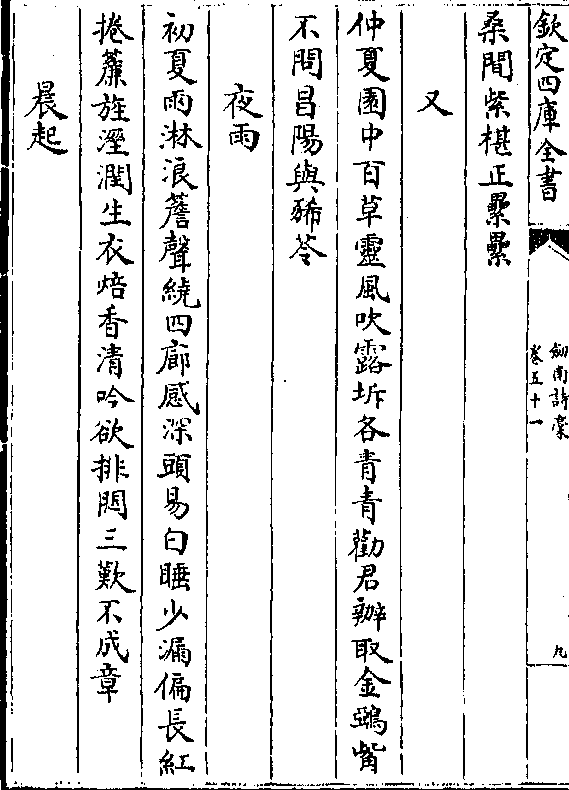 欽定四庫全書
劍南詩藁
卷五十一
九
桑間紫椹正纍纍
又
仲夏園中百草靈風吹露坼各青青勸君辦取金鴉觜
不問昌陽與豨苓
夜雨
初夏雨淋浪簷聲繞四廊感深頭易白睡少漏偏長紅
捲簾旌溼潤生衣焙香清吟欲排悶三歎不成章
晨起